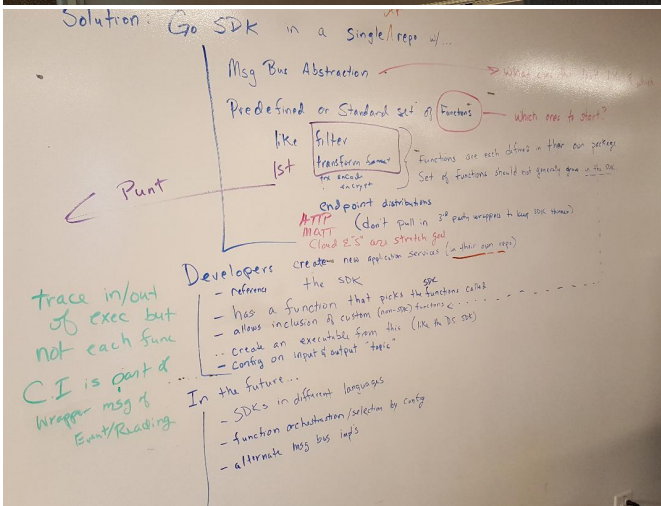 Solution: Go SDK in a single repo w/...
Msg Bus Abstraction
Predefined or Standard set of Functions
which ones to start?
like filter
1st transform format
encrypt
Functions are each defined in their own package
Set of functions should not generally grow in the
Punt
endpoint distributions
HTTP (don't pull in 3rd party wrappers to keep SDK
MQTT
Cloud are stretch goal
Developers create new application services (in their own repo)
- reference the SDK
- has a function that picks the SDK functions called
- allows inclusion of custom (non-SDK) functions
- create an executable from this (like the DS SDK)
- config on input & output "topic"
trace in/out
of exec but
not each func
C.I is part of
Wrapper msg of
Event/Reading
In the future...
- SDKs in different languages
- function orchestration/selection by config
- alternate msg bus impl's